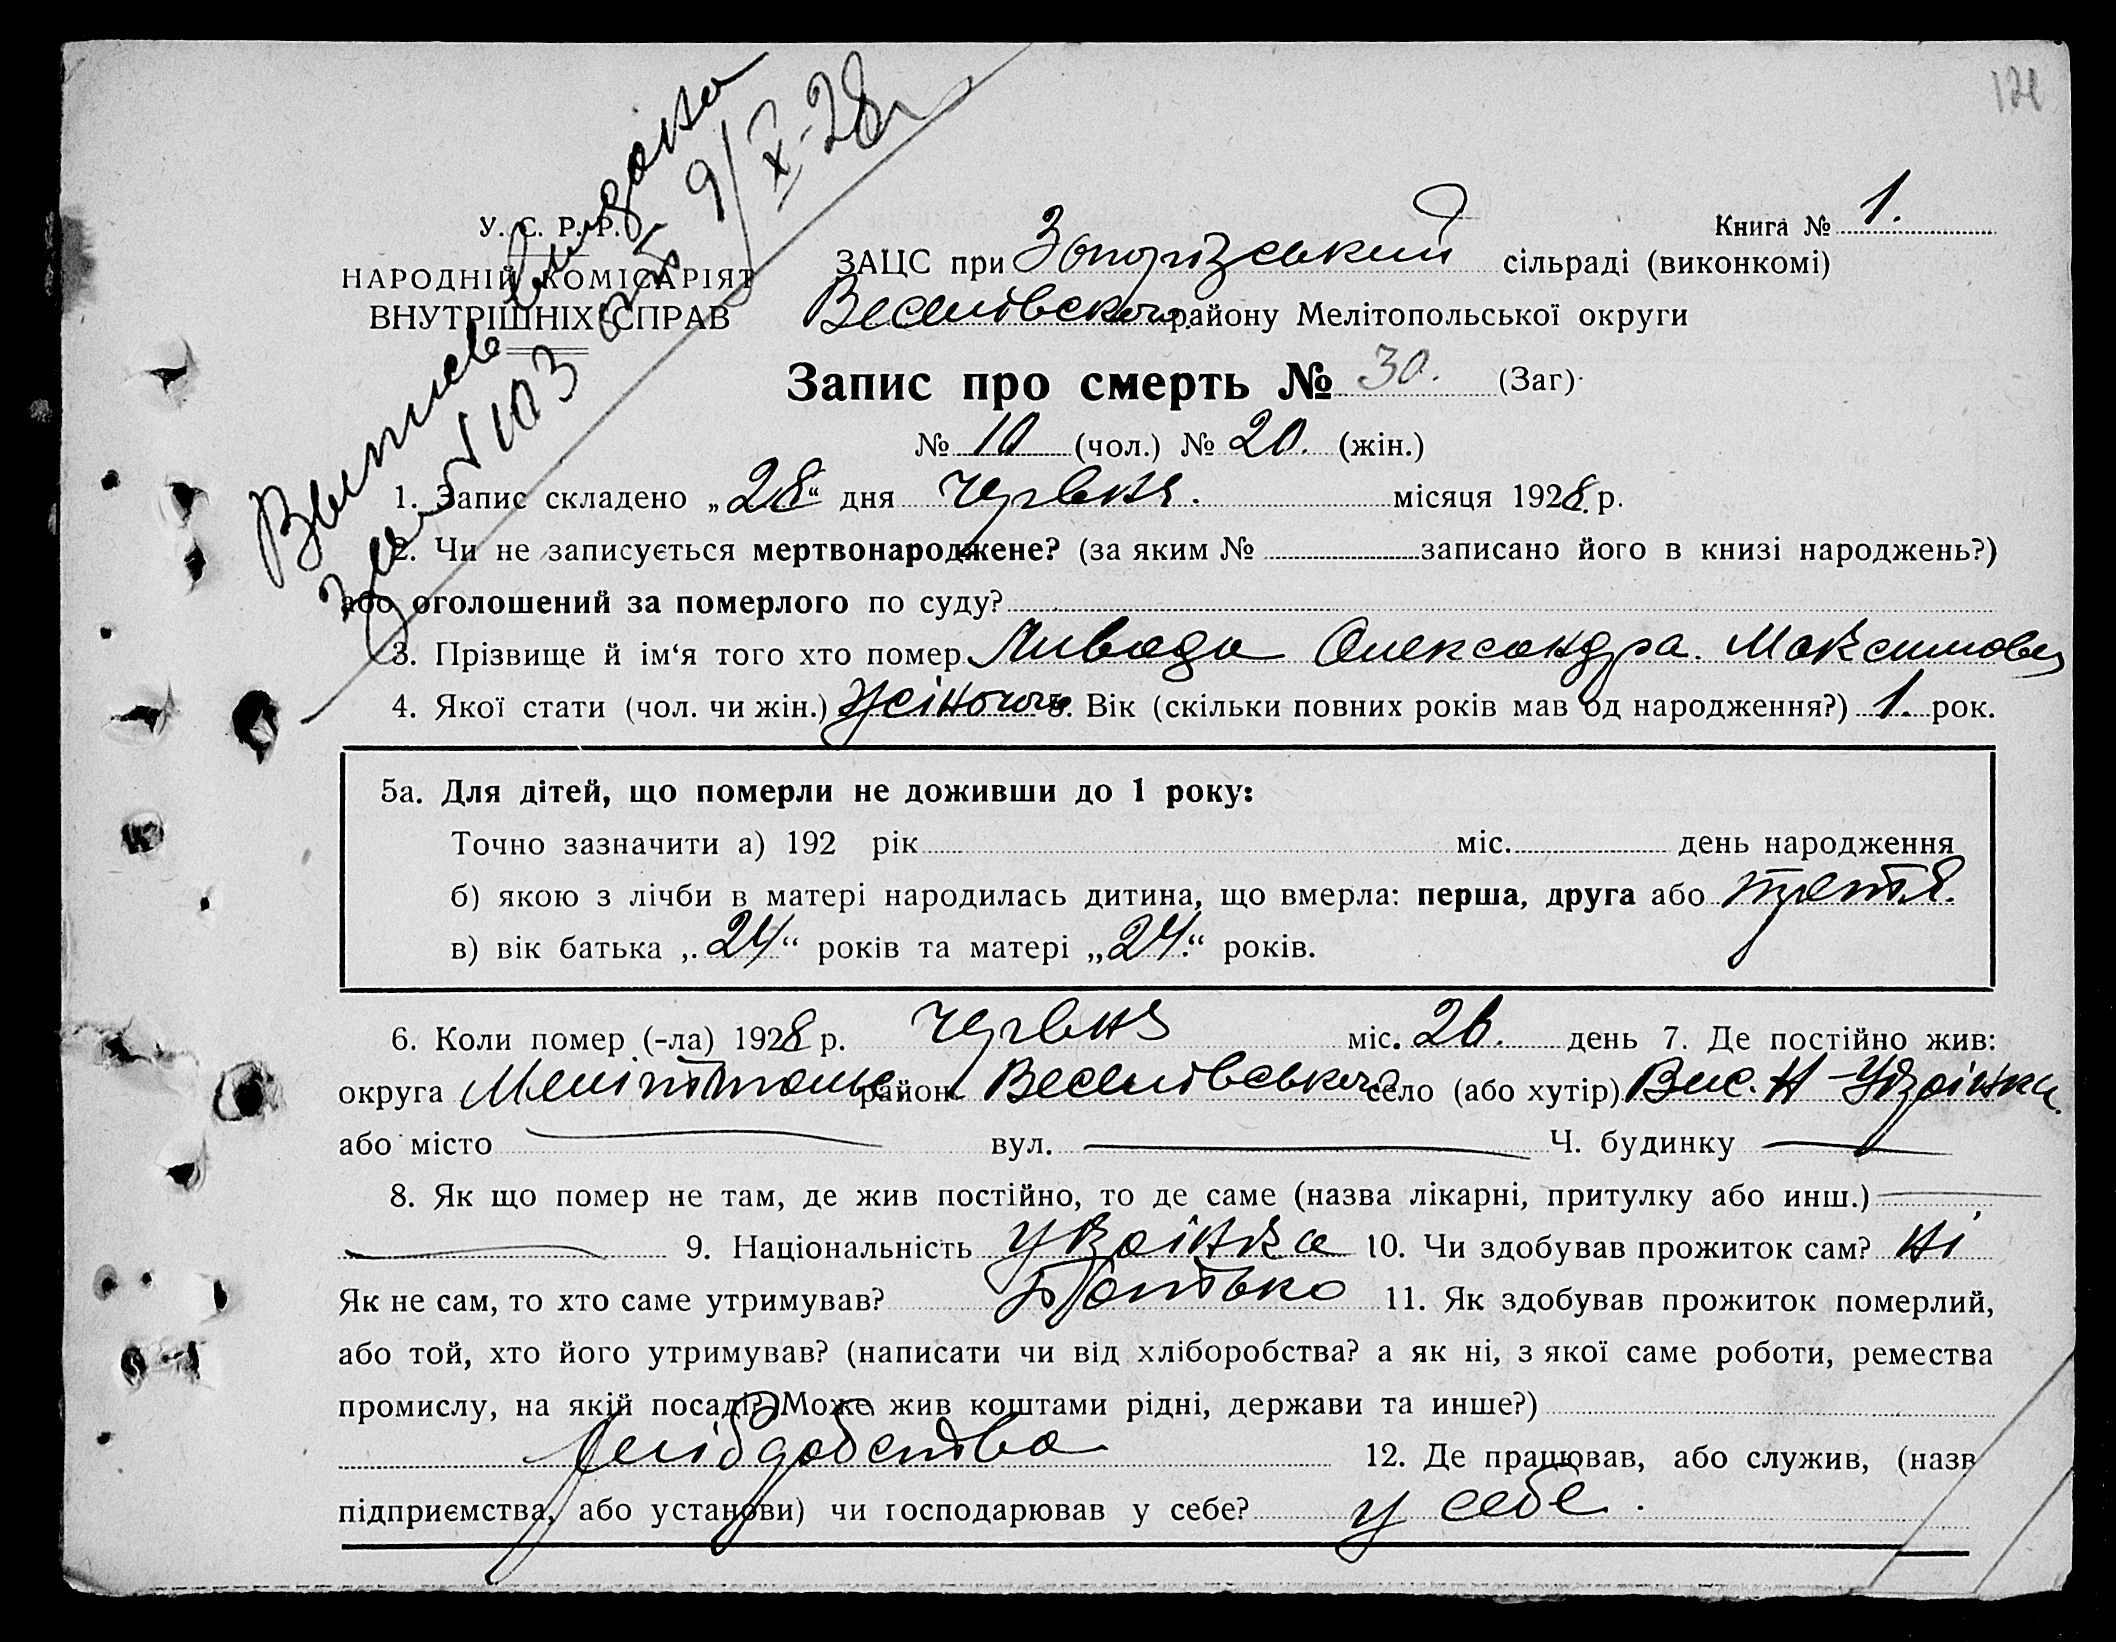 124
Выпись выдана
за № 1103 9/X-28 г
У. С. Р. Р.
НАРОДНІЙ КОМІСАРІЯТ
ВНУТРІШНІХ СПРАВ
Книга № 1.
ЗАЦС при Запорізський сільраді (виконкомі)
Веселівского району Мелітопольської округи
Запис про смерть № 30. (Заг).
№ 10 (чол.) № 20. (жін.)
1. Запис складено „28“ дня червня. місяця 1928 р.
2. Чи не записується мертвонароджене? (за яким № записано його в книзі народжень?)
або оголошений за померлого по суду?
3. Прізвище й ім‘я того хто помер Ливада Олександра Максимовн
4. Якої стати (чол. чи жін.) жіночого 5. Вік (скільки повних років мав од народження?) 1. рок.
5а. Для дітей, що померли не доживши до 1 року:
Точно зазначити а) 192 рік міс. день народження
б) якою з лічби в матері народилась дитина, що вмерла: перша, друга або третя.
в) вік батька „24“ років та матері „24.“ років.
6. Коли помер (-ла) 1928 р. червня міс. 26. день 7. Де постійно жив:
округа Мелітополь район Веселівського село (або хутір) Вис. Н-Українка.
або місто вул. Ч. будинку
8. Як що помер не там, де жив постійно, то де саме (назва лікарні, притулку або инш.)
9. Національність українка 10. Чи здобував прожиток сам? ні
Як не сам, то хто саме утримував? Батько 11. Як здобував прожиток померлий,
або той, хто його утримував? (написати чи від хліборобства? а як ні, з якої саме роботи, ремества
промислу, на якій посаді? Може жив коштами рідні, держави та инше?)
хлібробства 12. Де працював, або служив, (назв
підприємства, або установи) чи господарював у себе? у себе.